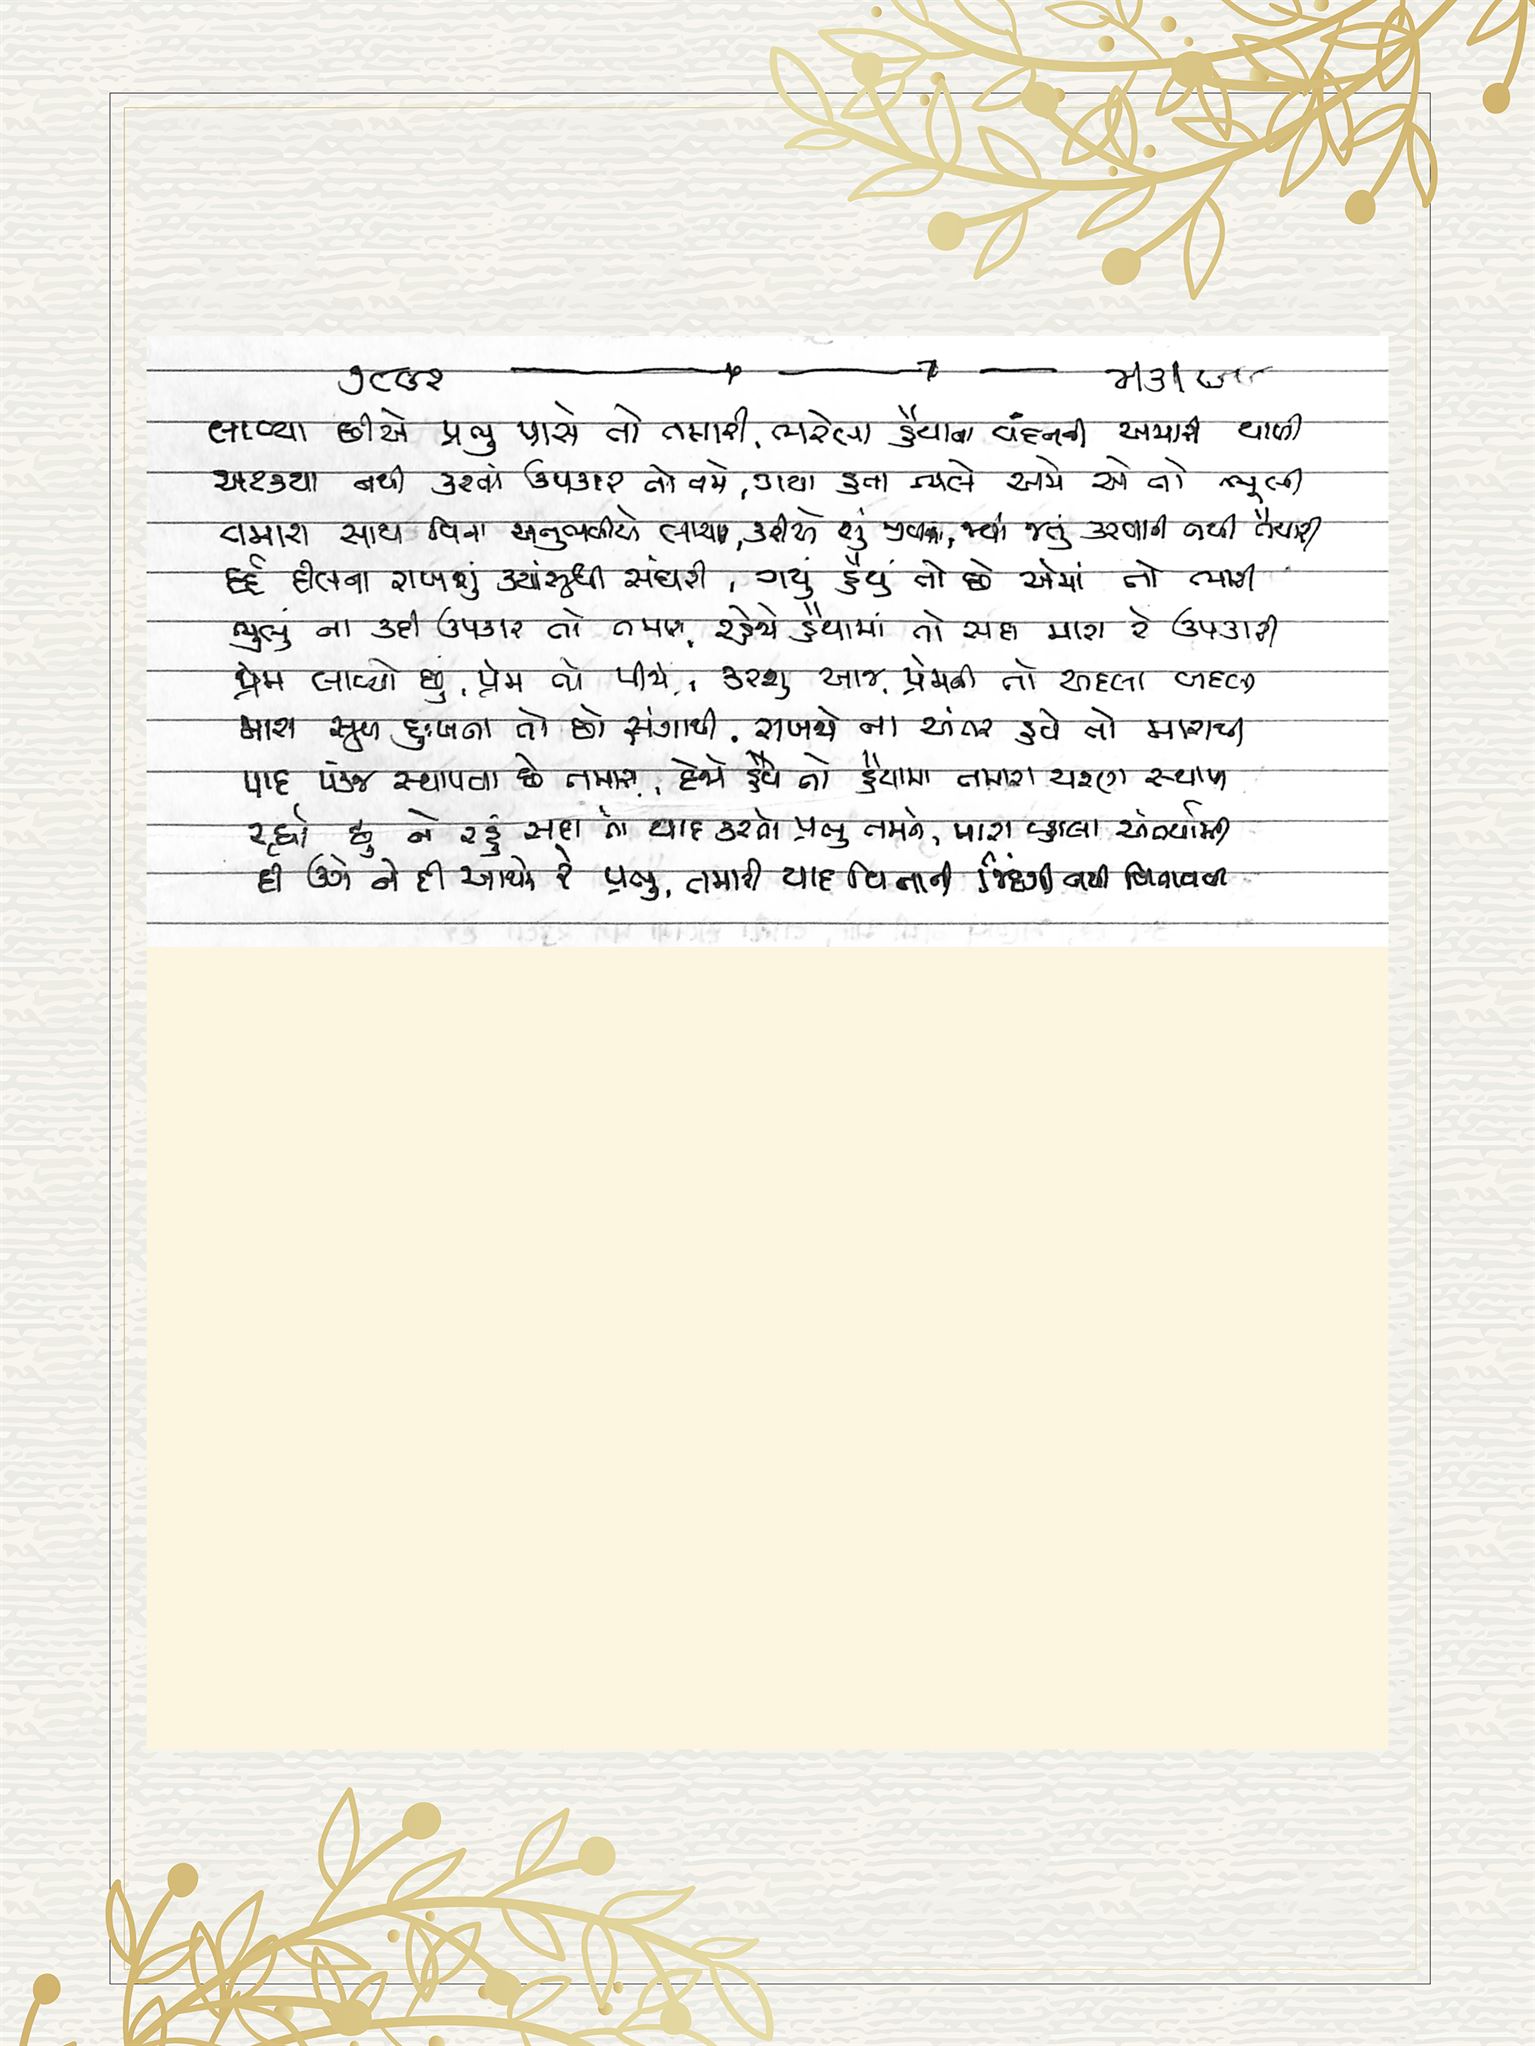 લાવ્યા છીએ પ્રભુ પાસે તો તમારી, ભરેલા હૈયાના વંદનની અમારી થાળી
અટક્યા નથી કરવાં ઉપકાર તો તમે, ગયા હતા ભલે અમે એ તો ભૂલી
તમારા સાથ વિના અનુભવીએ, કરીએ શું, જતું કરવાની નથી તૈયારી
દર્દ દીલના રાખશું ક્યાંસુધી સંઘરી, ગયું હૈયું તો છે એમાં તો ભારી
ભુલું ના કદી ઉપકાર તો તમારા, રહેજો હૈયામાં તો સદા મારા રે ઉપકારી
પ્રેમ લાવ્યો છું, પ્રેમ તો પીજો, કરશુ આજ પ્રેમની તો અદલા બદલી
મારા સુખ દુઃખના તો છો સંગાથી, રાખજો ના અંતર હવે તો મારાથી
પાદ પંકજ સ્થાપવા છે તમારા, દેજો હવે તો હૈયામા તમારા ચરણ સ્થાપી
રહ્યો છું ને રહું સદા તો યાદ કરતો પ્રભુ તમને, મારા વ્હાલા અંતર્યામી
દી ઉગે ને દી આથમે રે પ્રભુ, તમારી યાદ વિનાની જિંદગી નથી વિતાવવી